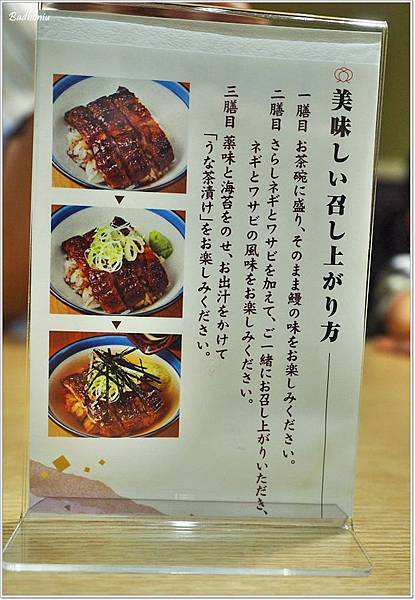 Badboniu
美味しい召し上がり方
一膳目 お茶碗に盛り、そのまま鰻の味をお楽しみください。
二膳目 さらしネギとワサビを加えて、ご一緒にお召し上がりいただき、
ネギとワサビの風味をお楽しみください。
三膳目 薬味と海苔をのせ、お出汁をかけて
「うな茶漬け」をお楽しみください。